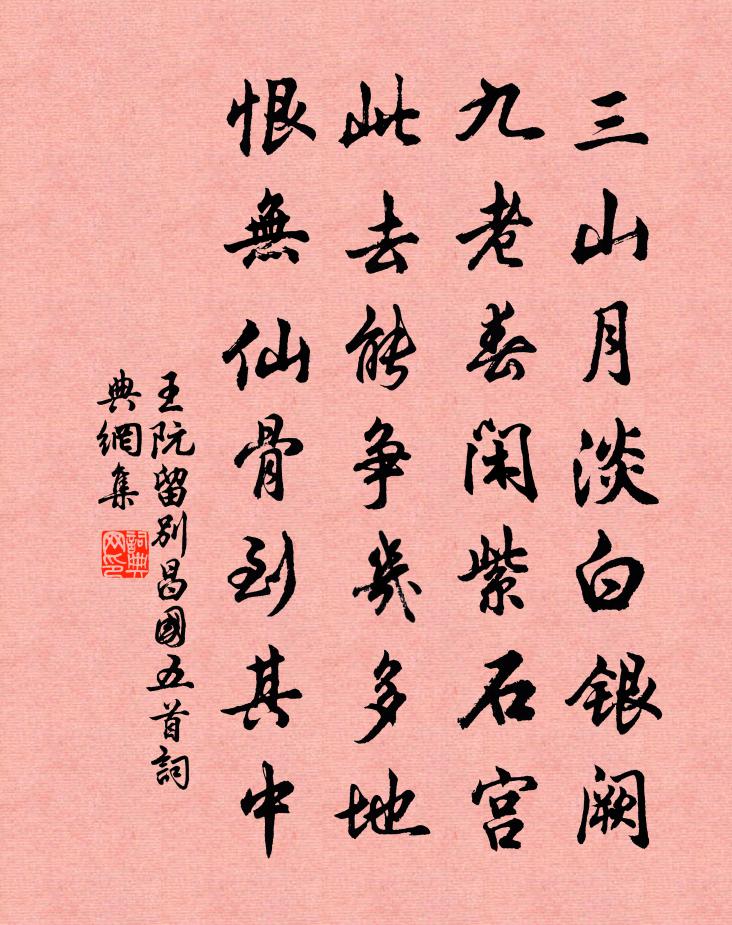 三山月淡白银阙
九老春闲紫石宫
此去能争幾多地
恨無仙骨到其中
王阮留别昌國五首詞
典網集
詞典网印